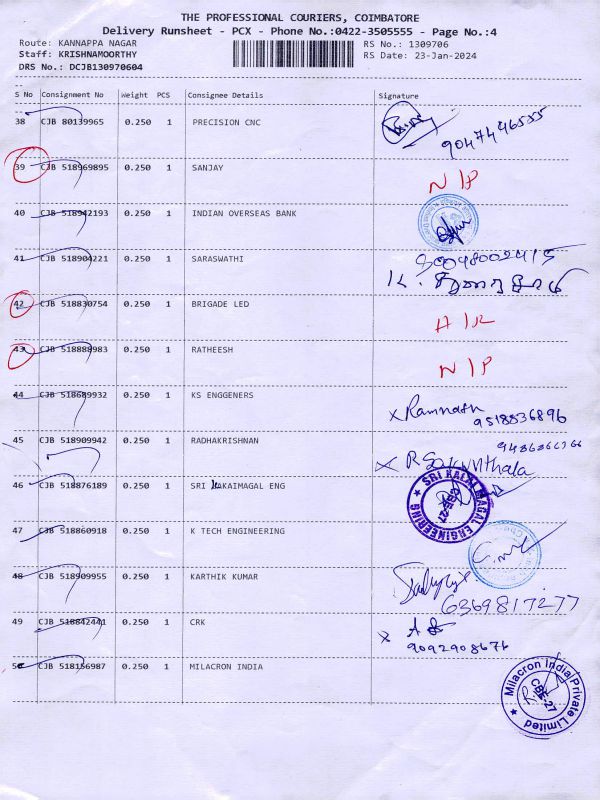 THE PROFESSIONAL COURIERS, COIMBATORE
Delivery Runsheet - PCX - Phone No.:0422-3505555 - Page No.:4
Route: KANNAPPA NAGAR RS No.: 1309706
Staff: KRISHNAMOORTHY RS Date: 23-Jan-2024
DRS No.: DCJB130970604
S No Consignment No Weight PCS Consignee Details Signature
38 CJB 80139965 0.250 1 PRECISION CNC
9047446555
39 CJB 518969895 0.250 1 SANJAY N/P
40 CJB 518942193 0.250 1 INDIAN OVERSEAS BANK
41 CJB 518904221 0.250 1 SARASWATHI
42 CJB 518830754 0.250 1 BRIGADE LED A/R
43 CJB 518888983 0.250 1 RATHEESH N/P
44 CJB 518689932 0.250 1 KS ENGGENERS x Ramnath
9518836896
45 CJB 518909942 0.250 1 RADHAKRISHNAN
46 CJB 518876189 0.250 1 SRI KAIMAGAL ENG
SRI KALAI MAGAL ENGINEERING
CBE-27
47 CJB 518860918 0.250 1 K TECH ENGINEERING
48 CJB 518909955 0.250 1 KARTHIK KUMAR
6369817277
49 CJB 518842441 0.250 1 CRK
9092908676
50 CJB 518156987 0.250 1 MILACRON INDIA
Milacron India Private Limited
CBE-27